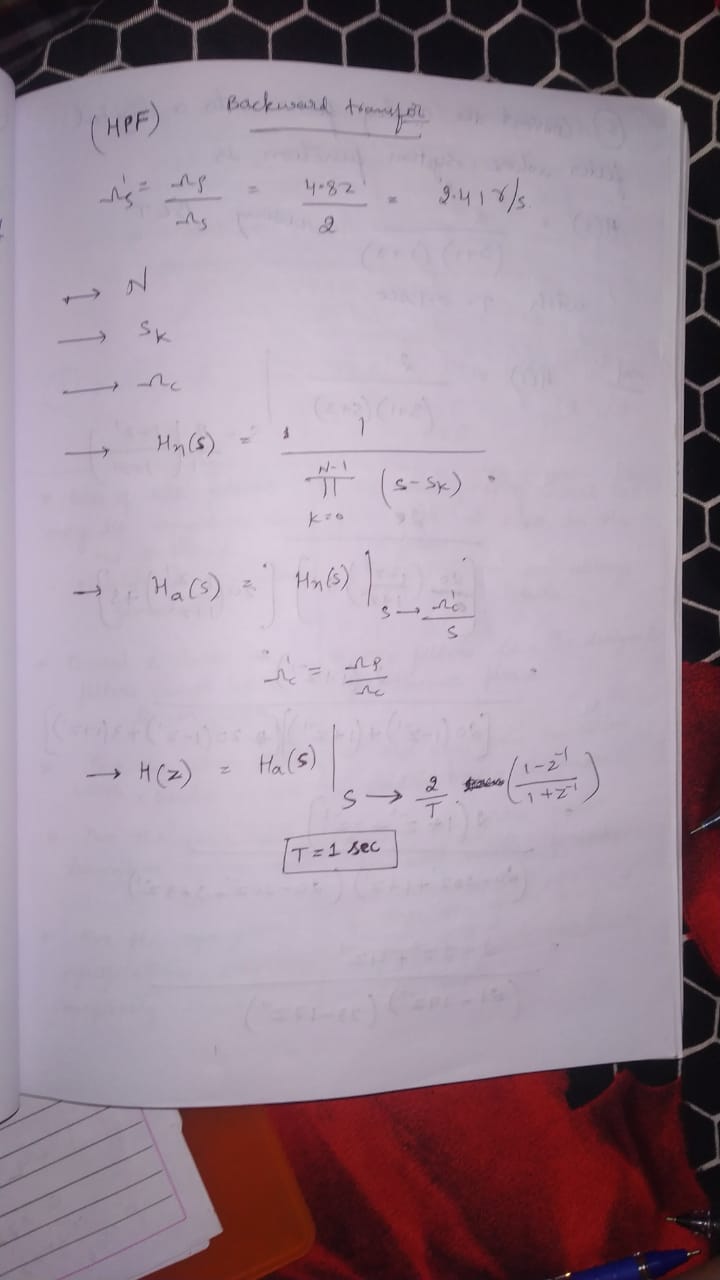 Backward transfor
(HPF)
Ωs' = Ωp/Ωs = 4.82/2 = 2.41 r/s
→ N
→ SK
→ Ωc
→ Hn(s) = 1 / ∏_{K=0}^{N-1} (s-SK)
→ Ha(s) = Hn(s) | s → Ωc'/s
Ωc' = Ωp/Ωc
→ H(z) = Ha(s) | s → 2/T (1-z^-1 / 1+z^-1)
T = 1 sec